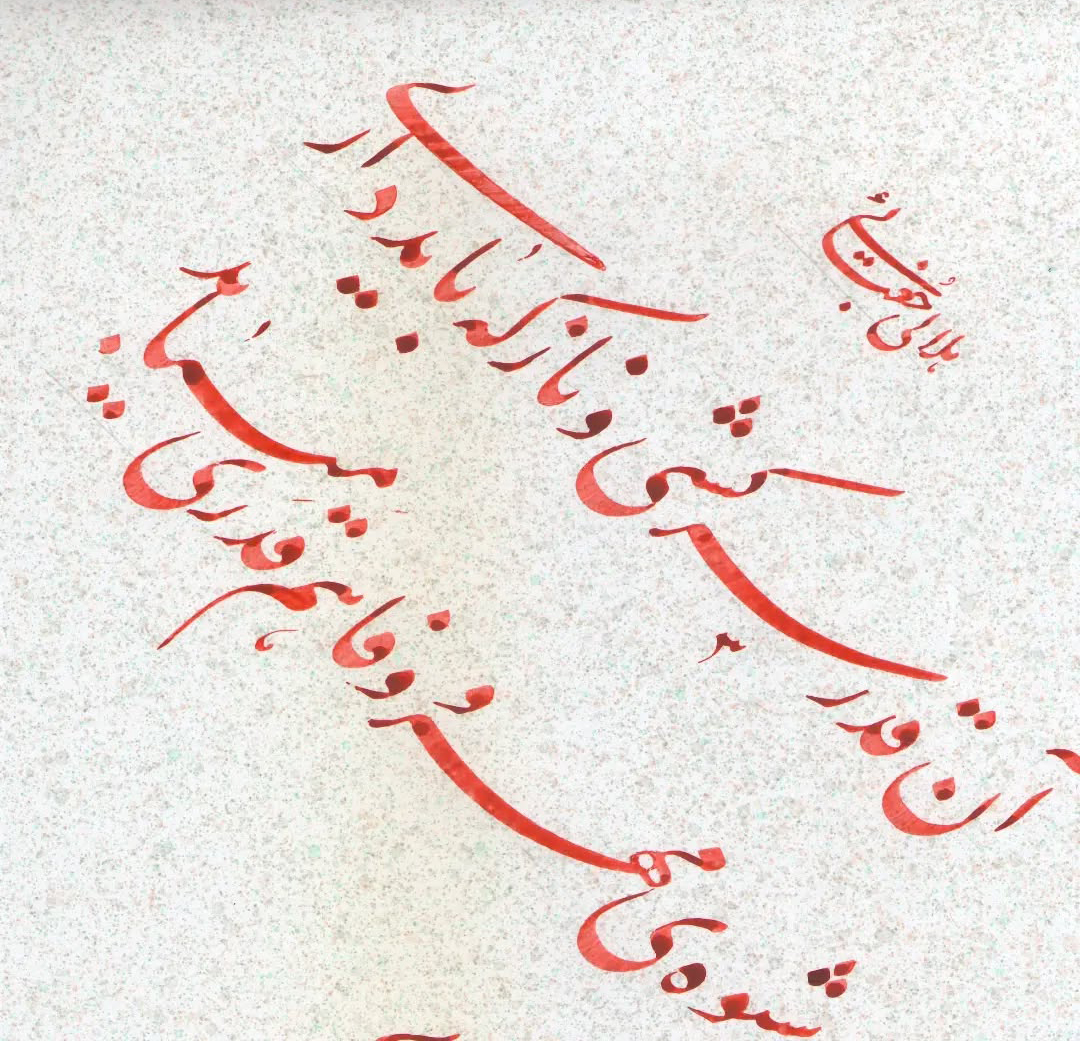 آن قدر سرکشی و ناز که باید داری
شیوه ی مهر و وفا هم قدری می باید
هلالی جغتائی